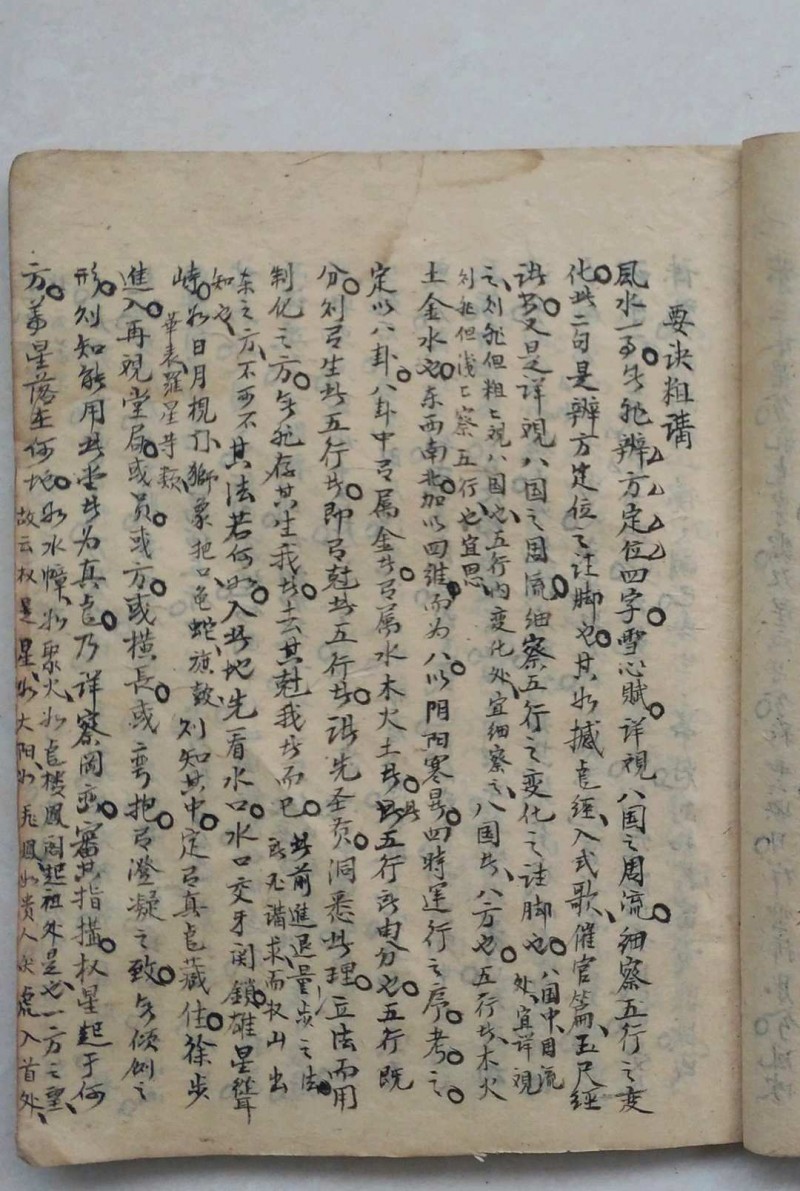 要诀粗譜
風水一事無非辨方定位四字雪心賦詳視八国之周流細察五行之变
化此二句是辨方定位之註脚也其如撼龍經入式歌催官篇玉尺經
諸書又是詳視八国之周流細察五行之变化之註脚也八国中周流処宜詳視
之則非但粗粗視八国也五行内变化処宜細察之則非但浅浅察五行也宜思八国者八方也五行者木火
土金水也东西南北加以四維而为八以阴阳寒暑四時運行之序考之
定以八卦八卦中有属金者有属水木火土者此五行所由分也五行既
分則有生此五行者即有尅此五行者諸先圣贤洞悉此理立法而用
制化之方無非存其生我者去其尅我者而已此前進退量步之法所不譜求而权山出
东之方不可不知也其法若何如入此地先看水口水口交牙関鎖雄星聳
峙如日月棍门獅象把口龟蛇旗鼓華表羅星等類則知其中定有真龍藏住徐步
進入再視堂局或员或方或横長或弯抱有澄凝之致無倾倒之
形則知能用此堂者为真龍乃詳察岡巒審其指揮权星起于何
方弟星落在何地如水幛如聚火如龍楼鳳阁起祖处是也一方之望
故云权是星如太阳如飛鳳如贵人伏虎入首处